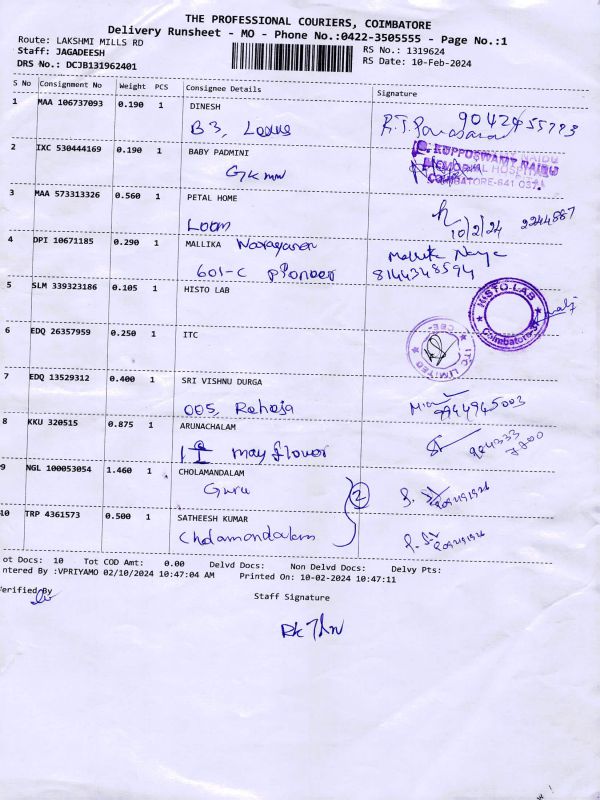 THE PROFESSIONAL COURIERS, COIMBATORE
Delivery Runsheet - MO - Phone No.:0422-3505555 - Page No.:1
Route: LAKSHMI MILLS RD
RS No.: 1319624
Staff: JAGADEESH
RS Date: 10-Feb-2024
DRS No.: DCJB131962401
S No Consignment No Weight PCS Consignee Details Signature
1 MAA 106737093 0.190 1 DINESH
B3, Lexus
2 IXC 530444169 0.190 1 BABY PADMINI
GKMM
KUPPOSWAMY NAIDU
MEMORIAL HOSPITAL
COIMBATORE-641 037
3 MAA 573313326 0.560 1 PETAL HOME
Loom
10/2/24 2244587
4 DPI 10671185 0.290 1 MALLIKA Narayanan
601-C Pioneer
Mallika
8144348594
5 SLM 339323186 0.105 1 HISTO LAB
HISTO LAB
Coimbatore
6 EDQ 26357959 0.250 1 ITC
ITC LIMITED
CBE
7 EDQ 13529312 0.400 1 SRI VISHNU DURGA
005, Raheja
9944945003
8 KKU 320515 0.875 1 ARUNACHALAM
may flower
984333
7700
9 NGL 100053054 1.460 1 CHOLAMANDALAM
Guru
2
10 TRP 4361573 0.500 1 SATHEESH KUMAR
Cholamandalam
ot Docs: 10 Tot COD Amt: 0.00 Delvd Docs: Non Delvd Docs: Delvy Pts:
ntered By :VPRIYAMO 02/10/2024 10:47:04 AM Printed On: 10-02-2024 10:47:11
Verified By
Staff Signature